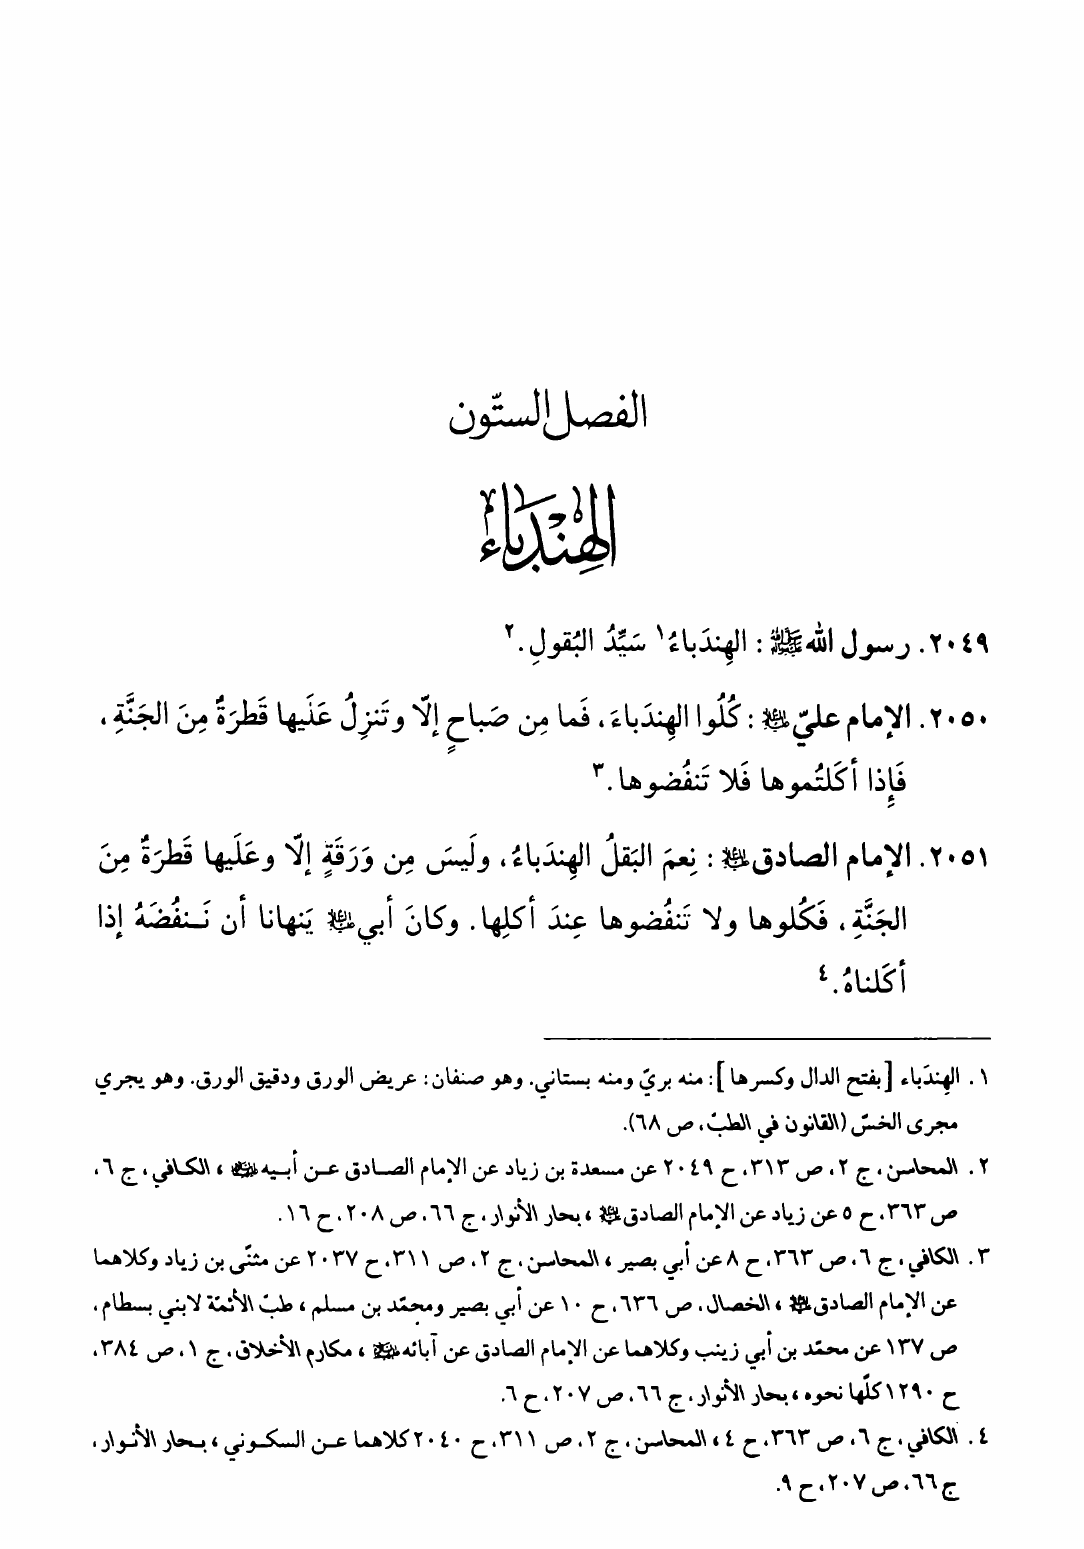 الفصل الستّون
الهِنْدَباءُ
٢٠٤٩. رسول الله ﷺ : الهِندَباءُ١ سَيِّدُ البُقولِ.٢
٢٠٥٠. الإمام عليّ ؑ : كُلُوا الهِندَباءَ، فَما مِن صَباحٍ إلّا وتَنزِلُ عَلَيها قَطرَةٌ مِنَ الجَنَّةِ،
فَإِذا أكَلتُموها فَلا تَنفُضوها.٣
٢٠٥١. الإمام الصادق ؑ : نِعمَ البَقلُ الهِندَباءُ، ولَيسَ مِن وَرَقَةٍ إلّا وعَلَيها قَطرَةٌ مِنَ
الجَنَّةِ، فَكُلوها ولا تَنفُضوها عِندَ أكلِها. وكانَ أبي ؑ يَنهانا أن نَـنفُضَهُ إذا
أكَلناهُ.٤
١. الهِندَباء [بفتح الدال وكسرها]: منه بريّ ومنه بستاني. وهو صنفان: عريض الورق ودقيق الورق. وهو يجري
مجرى الخسّ (القانون في الطبّ، ص ٦٨).
٢. المحاسن، ج ٢، ص ٣١٣، ح ٢٠٤٩ عن مسعدة بن زياد عن الإمام الصـادق عـن أبـيه ؑ ، الكـافي، ج ٦،
ص ٣٦٣، ح ٥ عن زياد عن الإمام الصادق ؑ ، بحار الأنوار، ج ٦٦، ص ٢٠٨، ح ١٦.
٣. الكافي، ج ٦، ص ٣٦٣، ح ٨ عن أبي بصير ، المحاسن، ج ٢، ص ٣١١، ح ٢٠٣٧ عن مثنّى بن زياد وكلاهما
عن الإمام الصادق ؑ ، الخصال، ص ٦٣٦، ح ١٠ عن أبي بصير ومحمّد بن مسلم ، طبّ الأئمّة لابني بسطام،
ص ١٣٧ عن محمّد بن أبي زينب وكلاهما عن الإمام الصادق عن آبائه ؑ ، مكارم الأخلاق، ج ١، ص ٣٨٤،
ح ١٢٩٠ كلّها نحوه ، بحار الأنوار، ج ٦٦، ص ٢٠٧، ح ٦.
٤. الكافي، ج ٦، ص ٣٦٣، ح ٤ ، المحاسن، ج ٢، ص ٣١١، ح ٢٠٤٠ كلاهما عـن السكـوني ، بـحار الأنـوار،
ج ٦٦، ص ٢٠٧، ح ٩.